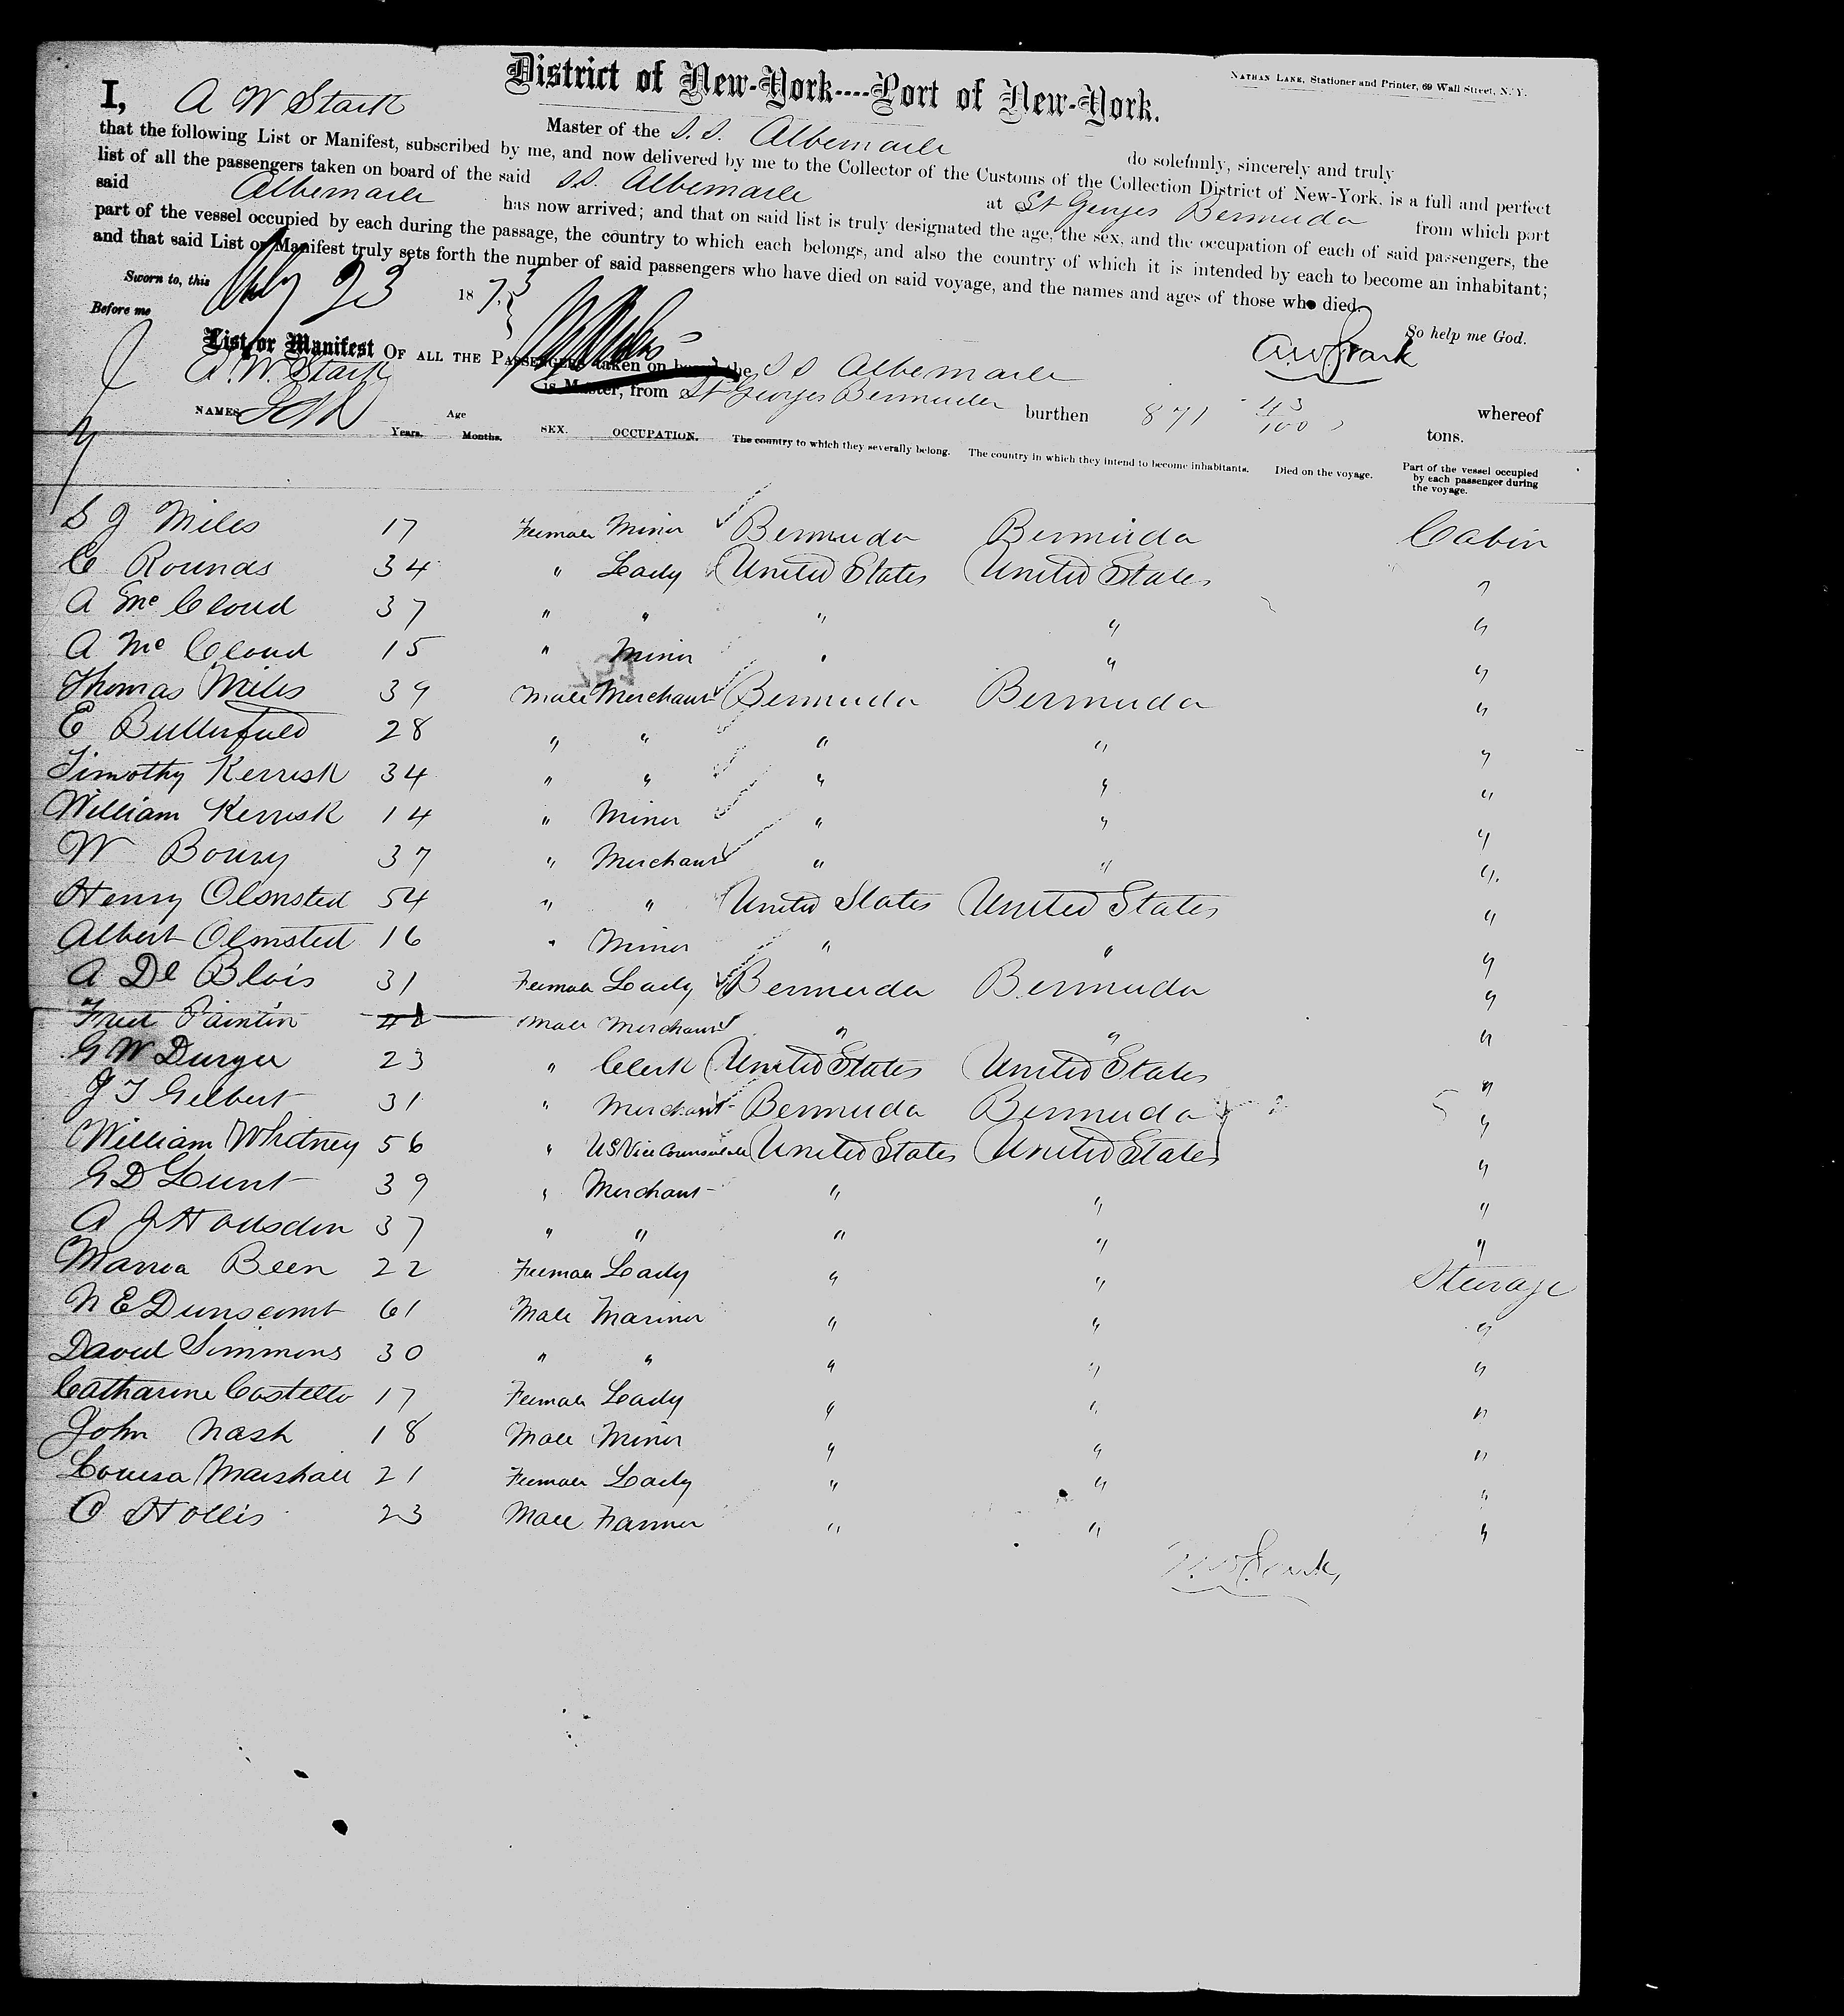 District of New-York----Port of New-York.
NATHAN LANE, Stationer and Printer, 69 Wall Street, N. Y.
I, A W Stark Master of the S. S. Albemarle do solemnly, sincerely and truly
that the following List or Manifest, subscribed by me, and now delivered by me to the Collector of the Customs of the Collection District of New-York, is a full and perfect
list of all the passengers taken on board of the said SS. Albemarle at St Georges Bermuda from which port
said Albemarle has now arrived; and that on said list is truly designated the age, the sex, and the occupation of each of said passengers, the
part of the vessel occupied by each during the passage, the country to which each belongs, and also the country of which it is intended by each to become an inhabitant;
and that said List or Manifest truly sets forth the number of said passengers who have died on said voyage, and the names and ages of those who died.
Sworn to, this 23 1873
So help me God.
Before me
A W Stark
List or Manifest OF ALL THE PASSENGERS taken on board the S S Albemarle whereof
A. W. Stark is Master, from St Georges Bermuda burthen 871 43/100 tons.
NAMES Age Years. Months. SEX. OCCUPATION. The country to which they severally belong. The country in which they intend to become inhabitants. Died on the voyage. Part of the vessel occupied by each passenger during the voyage.
S J Miles 17 Female Minor Bermuda Bermuda Cabin
C Rounds 34 " Lady United States United States "
A Mc Cloud 37 " " " " "
A Mc Cloud 15 " Minor " " "
Thomas Miles 39 Male Merchant Bermuda Bermuda "
E Butterfield 28 " " " " "
Timothy Kerrisk 34 " " " " "
William Kerrisk 14 " Minor " " "
W Boury 37 " Merchant " " "
Henry Olmsted 54 " " United States United States "
Albert Olmsted 16 " Minor " " "
A De Blois 31 Female Lady Bermuda Bermuda "
Fred Paintin Male Merchant " " "
G W Duryee 23 " Clerk United States United States "
J T Gilbert 31 " Merchant Bermuda Bermuda "
William Whitney 56 " US Vice United States United States "
G D Lunt 39 " Merchant " " "
A J Housden 37 " " " " "
Marria Been 22 Female Lady " " Sturage
N E Dunscomb 61 Male Mariner " " "
David Simmons 30 " " " " "
Catharine Costello 17 Female Lady " " "
John Nash 18 Male Minor " " "
Louisa Marshall 21 Female Lady " " "
O Hollis 23 Male Farmer " " "
A W Stark